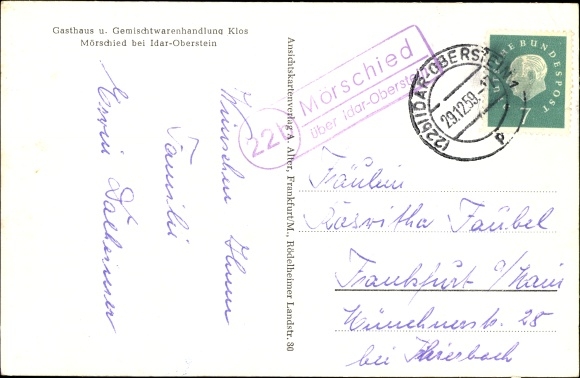 Gasthaus u. Gemischtwarenhandlung Klos
Mörschied bei Idar-Oberstein
Wünschen Ihnen
Familie
Erwin Dalheimer
Ansichtskartenverlag A. Alter, Frankfurt/M., Rödelheimer Landstr. 30
22b
Mörschied
über Idar-Oberstein
(22b) IDAR-OBERSTEIN 1
29.12.59.
d
DEUTSCHE BUNDESPOST
7
Fräulein
Roswitha Faubel
Frankfurt a/Main
Münchnerstr. 28
bei